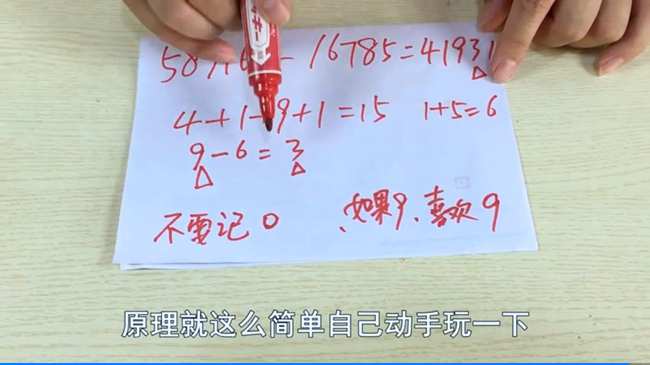 58716-16785=41931
4+1+9+1=15 1+5=6
9-6=3
不要记0 、如果9、喜欢9
原理就这么简单自己动手玩一下